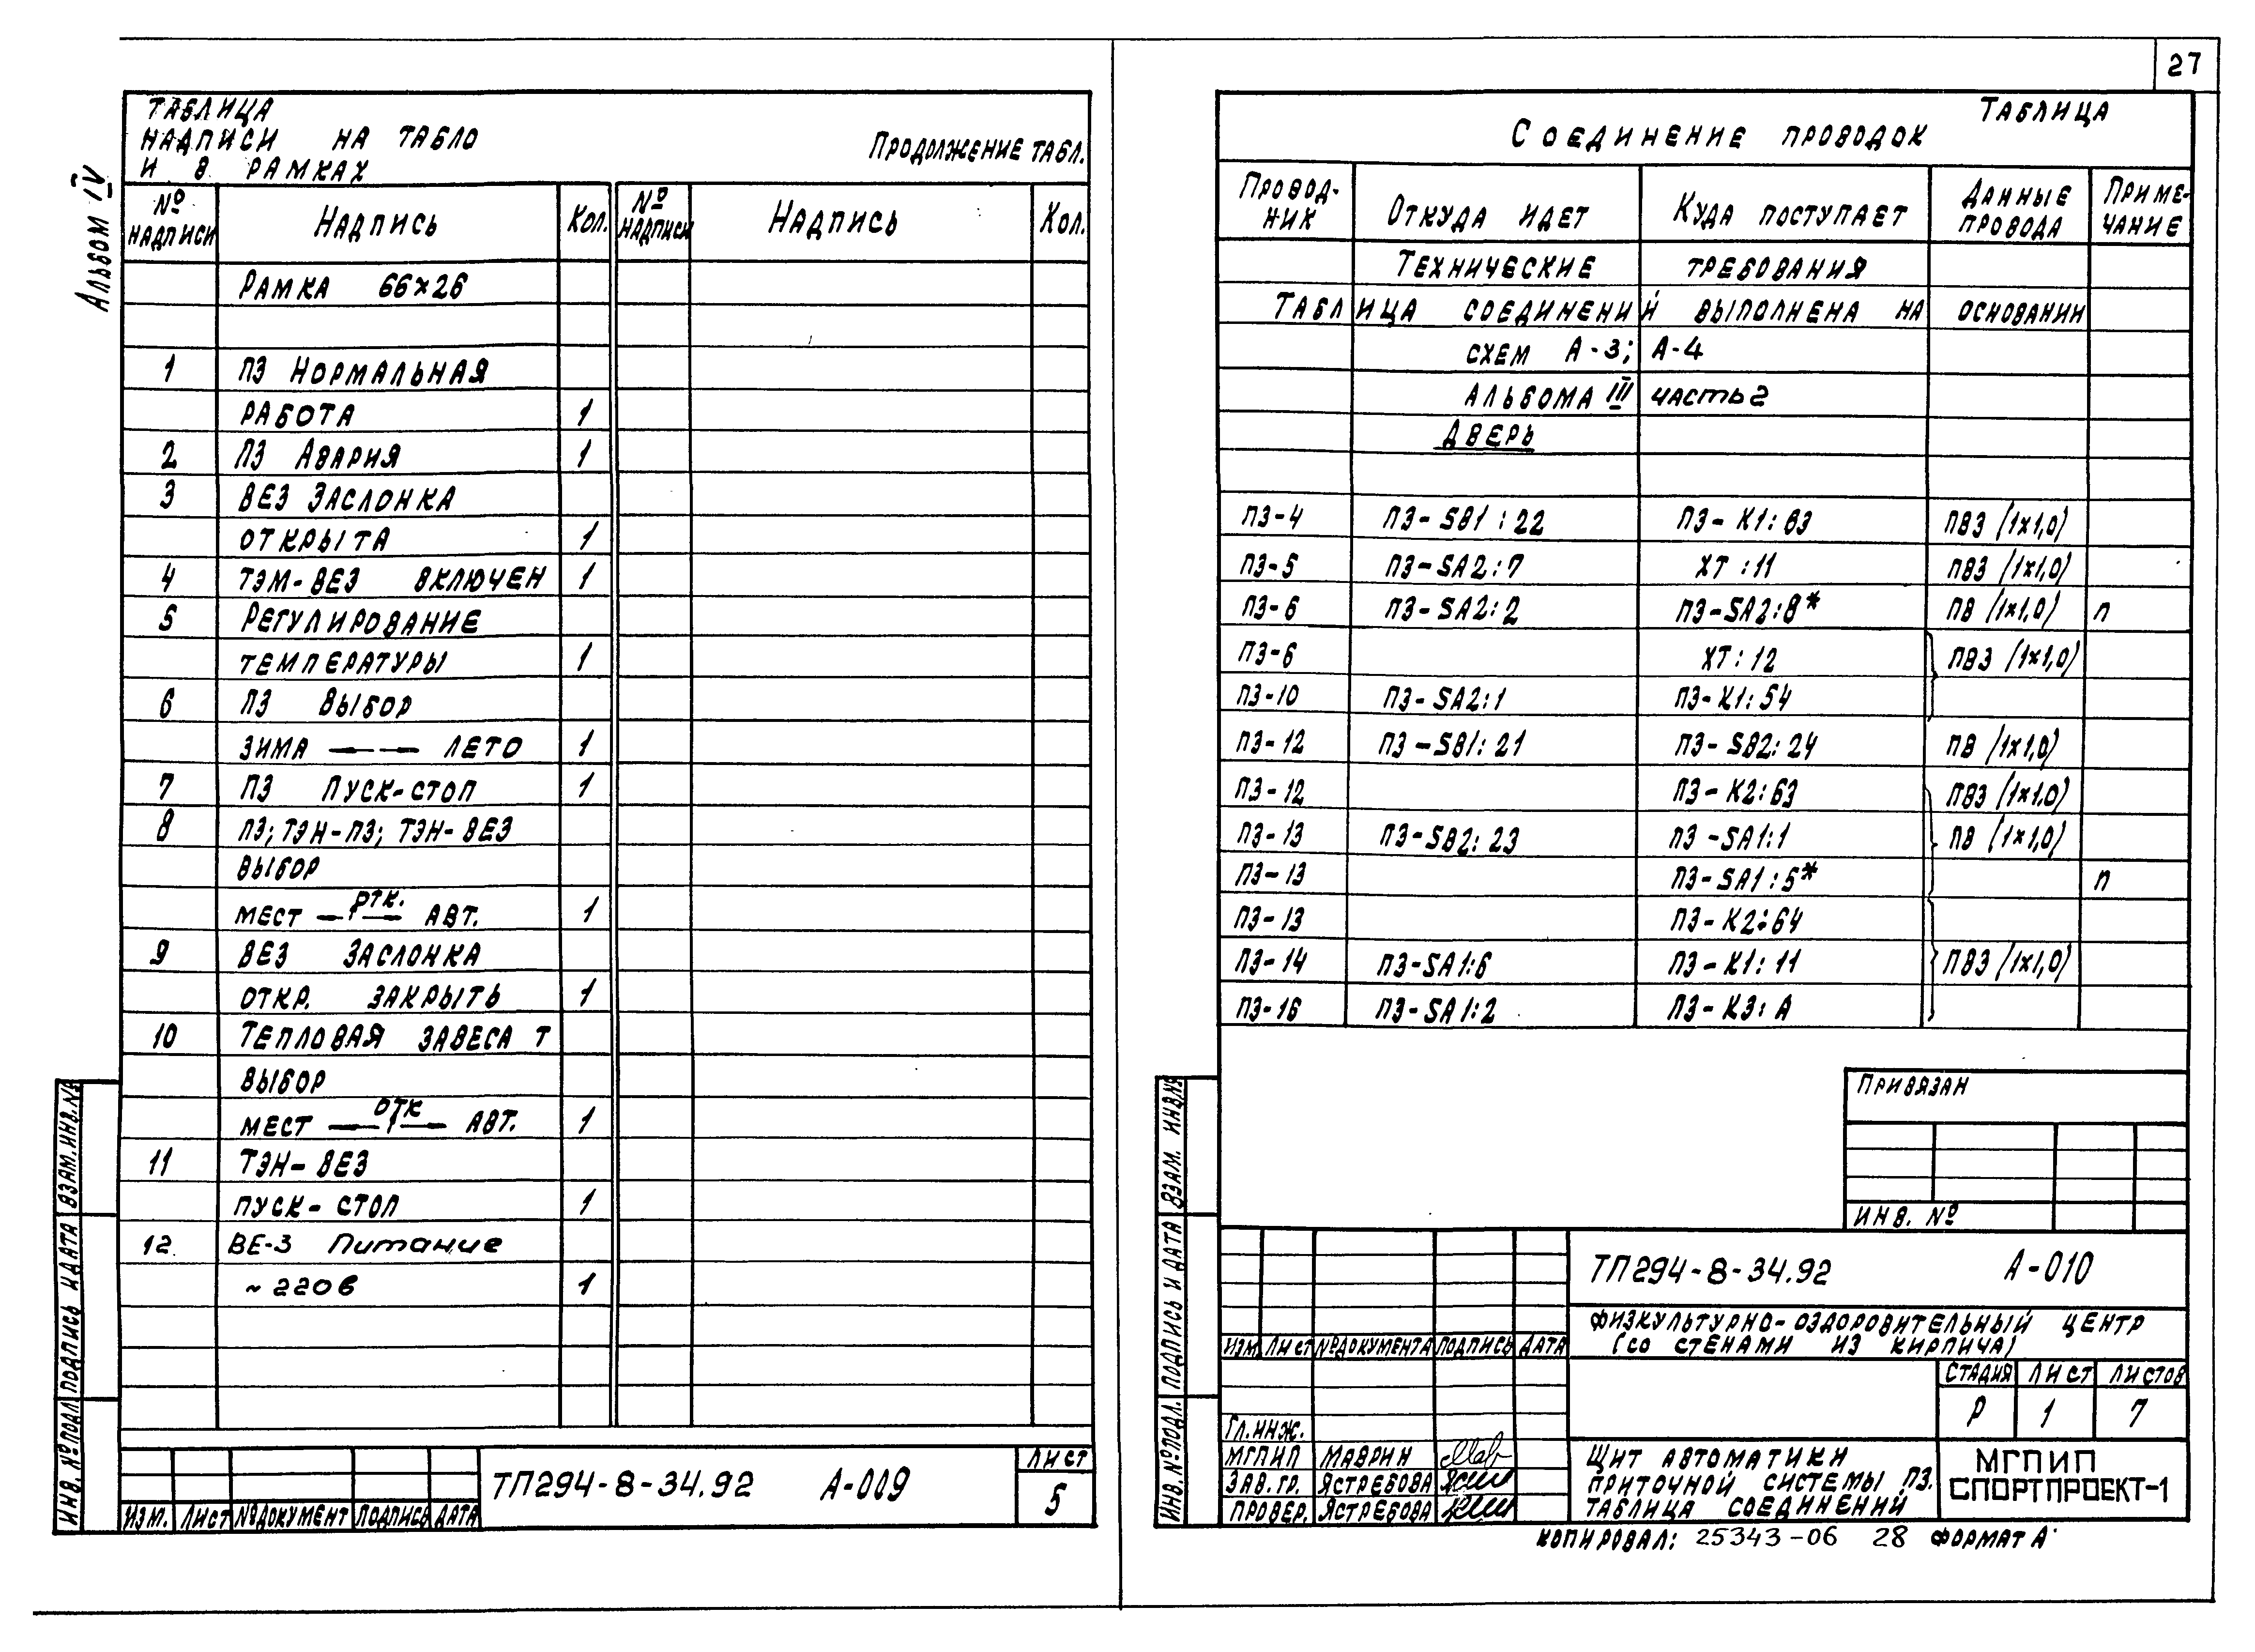 27
Альбом IV
ТАБЛИЦА
НАДПИСИ НА ТАБЛО
И В РАМКАХ
ПРОДОЛЖЕНИЕ ТАБЛ.
№ НАДПИСИ НАДПИСЬ КОЛ. № НАДПИСИ НАДПИСЬ КОЛ.
РАМКА 66×26
1 П3 НОРМАЛЬНАЯ
РАБОТА 1
2 П3 АВАРИЯ 1
3 ВЕ3 ЗАСЛОНКА
ОТКРЫТА 1
4 ТЭМ-ВЕ3 ВКЛЮЧЕН 1
5 РЕГУЛИРОВАНИЕ
ТЕМПЕРАТУРЫ 1
6 П3 ВЫБОР
ЗИМА ЛЕТО 1
7 П3 ПУСК-СТОП 1
8 П3; ТЭН-П3; ТЭН-ВЕ3
ВЫБОР
МЕСТ ОТК. АВТ. 1
9 ВЕ3 ЗАСЛОНКА
ОТКР. ЗАКРЫТЬ 1
10 ТЕПЛОВАЯ ЗАВЕСА Т
ВЫБОР
МЕСТ ОТК АВТ. 1
11 ТЭН-ВЕ3
ПУСК-СТОП 1
12 ВЕ-3 Питание
~220в 1
ВЗАМ.ИНВ.№
ПОДПИСЬ И ДАТА
ИНВ.№ПОДЛ
ИЗМ. ЛИСТ №ДОКУМЕНТ ПОДПИСЬ ДАТА
ТП294-8-34.92 А-009
ЛИСТ
5
ТАБЛИЦА
СОЕДИНЕНИЕ ПРОВОДОК
ПРОВОД-НИК ОТКУДА ИДЕТ КУДА ПОСТУПАЕТ ДАННЫЕ ПРОВОДА ПРИМЕ-ЧАНИЕ
ТЕХНИЧЕСКИЕ ТРЕБОВАНИЯ
ТАБЛИЦА СОЕДИНЕНИЙ ВЫПОЛНЕНА НА ОСНОВАНИИ
СХЕМ А-3; А-4
АЛЬБОМА III часть 2
ДВЕРЬ
П3-4 П3-SB1:22 П3-К1:63 ПВ3 (1×1,0)
П3-5 П3-SA2:7 ХТ:11 ПВ3 (1×1,0)
П3-6 П3-SA2:2 П3-SA2:8* ПВ (1×1,0) п
П3-6 ХТ:12 ПВ3 (1×1,0)
П3-10 П3-SA2:1 П3-К1:54
П3-12 П3-SB1:21 П3-SB2:24 ПВ (1×1,0)
П3-12 П3-К2:63 ПВ3 (1×1,0)
П3-13 П3-SB2:23 П3-SA1:1 ПВ (1×1,0)
П3-13 П3-SA1:5* п
П3-13 П3-К2:64
П3-14 П3-SA1:6 П3-К1:11 ПВ3 (1×1,0)
П3-16 П3-SA1:2 П3-К3:А
ПРИВЯЗАН
ИНВ. №
ВЗАМ. ИНВ№
ПОДПИСЬ И ДАТА
ИНВ.№ПОДЛ.
ТП294-8-34.92 А-010
ФИЗКУЛЬТУРНО-ОЗДОРОВИТЕЛЬНЫЙ ЦЕНТР
(СО СТЕНАМИ ИЗ КИРПИЧА)
ИЗМ. ЛИСТ №ДОКУМЕНТА ПОДПИСЬ ДАТА
СТАДИЯ ЛИСТ ЛИСТОВ
Р 1 7
ГЛ.ИНЖ.
МГПИП МАВРИН
ЗАВ.ГР. ЯСТРЕБОВА
ПРОВЕР. ЯСТРЕБОВА
ЩИТ АВТОМАТИКИ
ПРИТОЧНОЙ СИСТЕМЫ П3.
ТАБЛИЦА СОЕДИНЕНИЙ
МГПИП
СПОРТПРОЕКТ-1
КОПИРОВАЛ: 25343-06 28 ФОРМАТ А